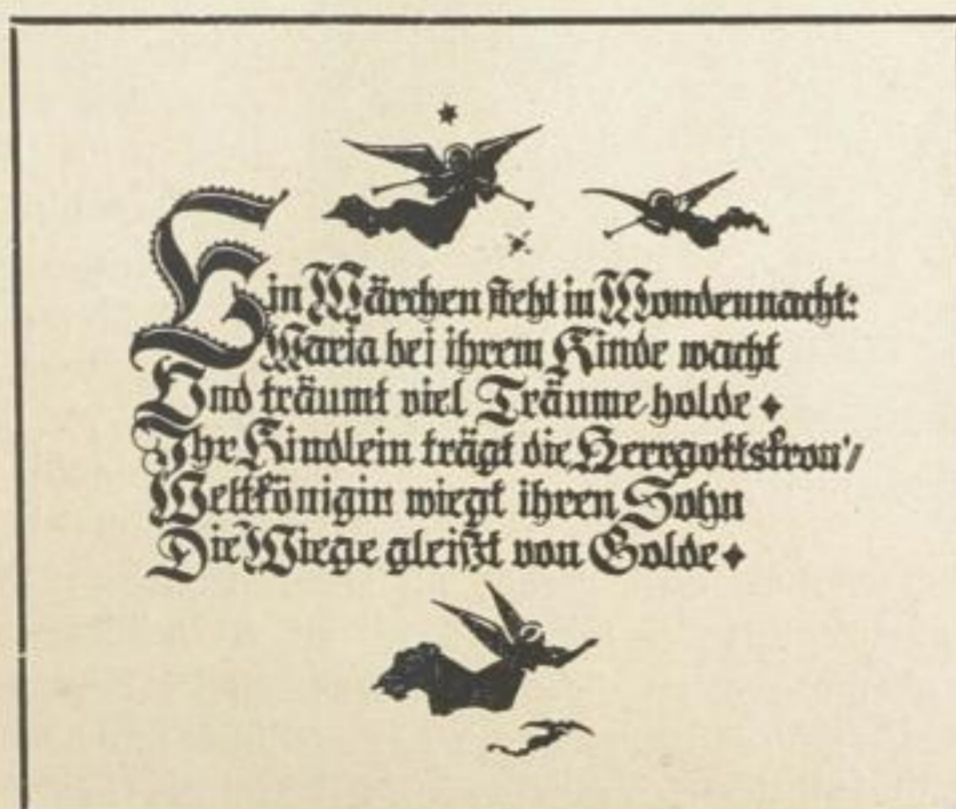 Ein Märchen steht in Mondennacht:
Maria bei ihrem Kinde wacht
Und träumt viel Träume holde ✦
Ihr Kindlein trägt die Herrgottskron'/
Weltkönigin wiegt ihren Sohn
Die Wiege gleißt von Golde ✦